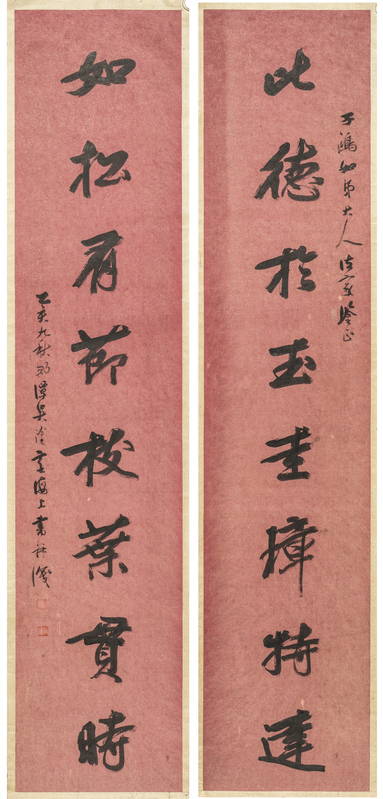 子鴻仁弟大人法家鑒正
比德於玉圭璋特達
如松有節枝葉貫時
乙亥九秋
海上書